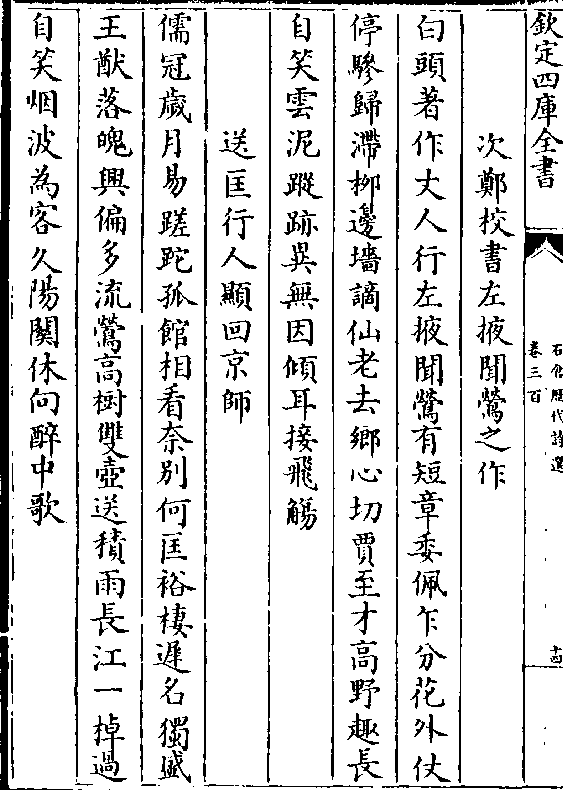 欽定四庫全書
石倉歷代詩選
卷三百
十四
次鄭校書左掖聞鶯之作
白頭著作丈人行左掖聞鶯有短章委佩乍分花外仗
停驂歸滯柳邊墻謫仙老去鄉心切賈至才高野趣長
自笑雲泥蹤跡異無因傾耳接飛觴
送匡行人顯回京師
儒冠歲月易蹉跎孤館相看奈别何匡裕棲遲名獨盛
王猷落魄興偏多流鶯高樹雙壺送積雨長江一棹過
自笑烟波為客久陽關休向醉中歌